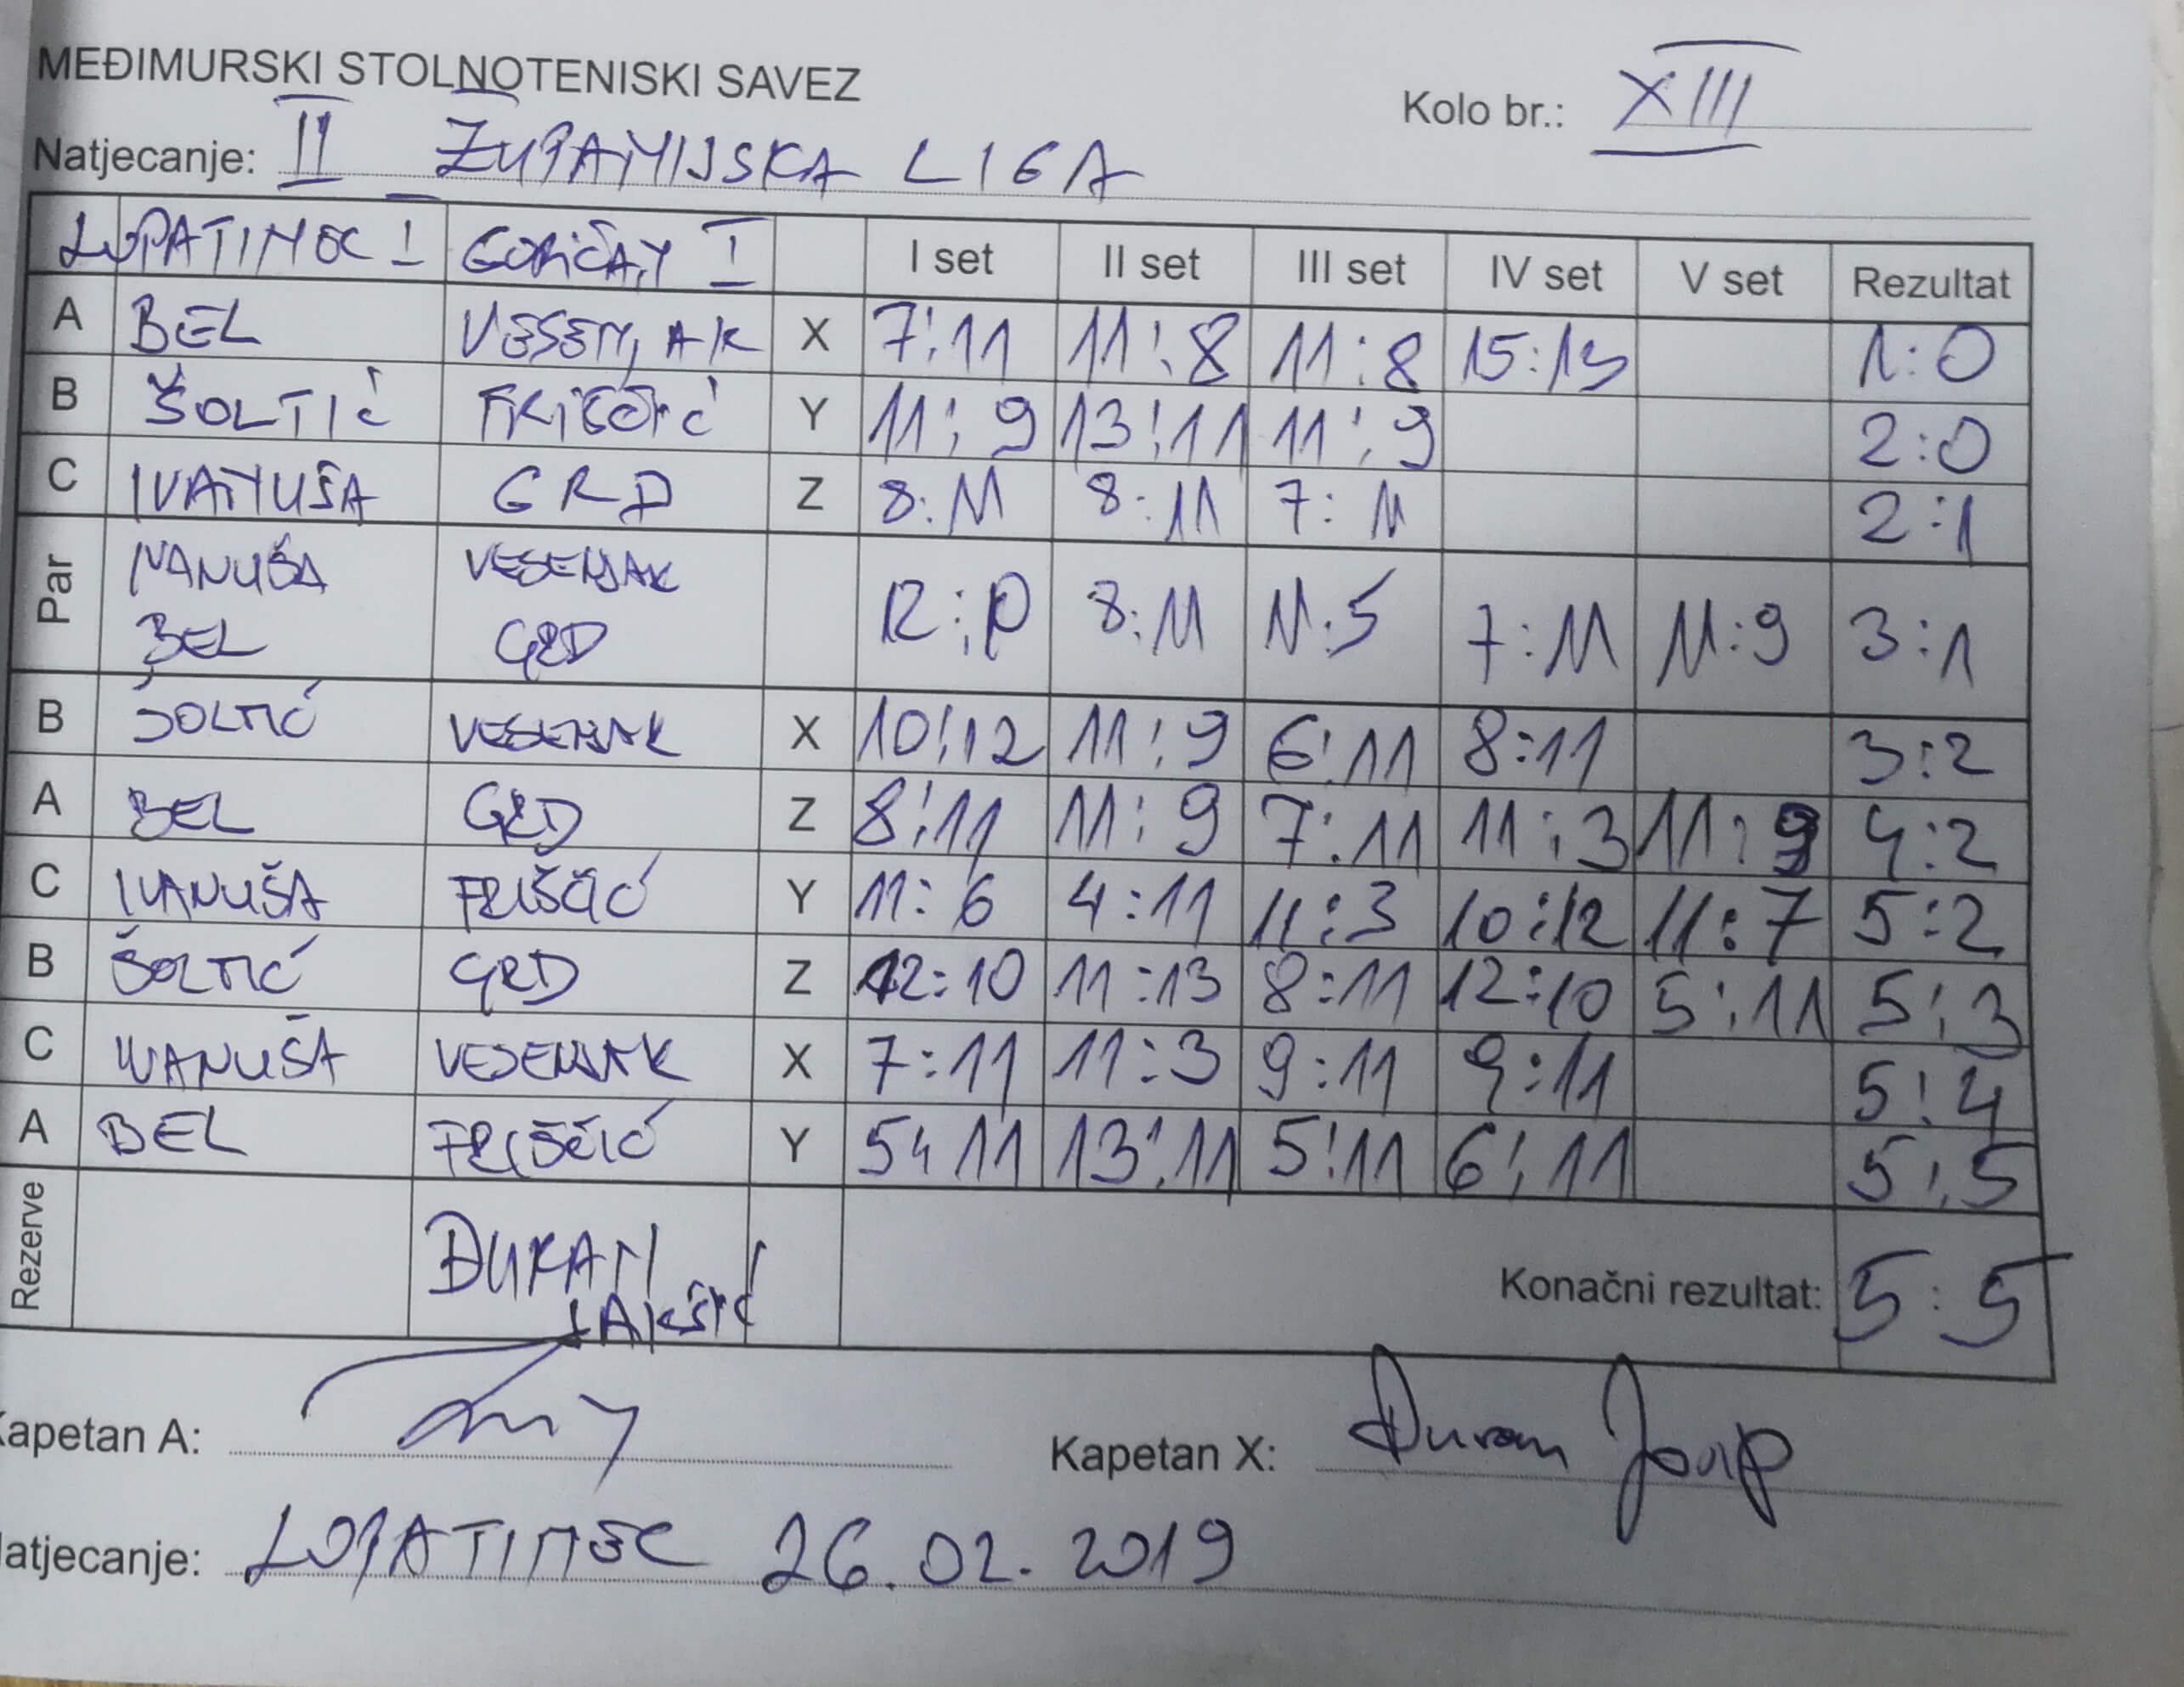 MEĐIMURSKI STOLNOTENISKI SAVEZ
Kolo br.: XIII
Natjecanje: II ŽUPANIJSKA LIGA
LOPATINEC I GORIČAN I I set II set III set IV set V set Rezultat
A BEL VESENJAK X 7:11 11:8 11:8 15:13 1:0
B ŠOLTIĆ FRIŠČIĆ Y 11:9 13:11 11:9 2:0
C IVANUŠA GRD Z 8:11 8:11 7:11 2:1
Par IVANUŠA VESENJAK
BEL GRD 12:10 8:11 11:5 7:11 11:9 3:1
B ŠOLTIĆ VESENJAK X 10:12 11:9 6:11 8:11 3:2
A BEL GRD Z 8:11 11:9 7:11 11:3 11:9 4:2
C IVANUŠA FRIŠČIĆ Y 11:6 4:11 11:3 10:12 11:7 5:2
B ŠOLTIĆ GRD Z 12:10 11:13 8:11 12:10 5:11 5:3
C IVANUŠA VESENJAK X 7:11 11:3 9:11 9:11 5:4
A BEL FRIŠČIĆ Y 5:11 13:11 5:11 6:11 5:5
Rezerve ĐURAN
JAKŠIĆ
Konačni rezultat: 5:5
Kapetan A:
Kapetan X: Đuran Josip
Natjecanje: LOPATINEC 26.02.2019